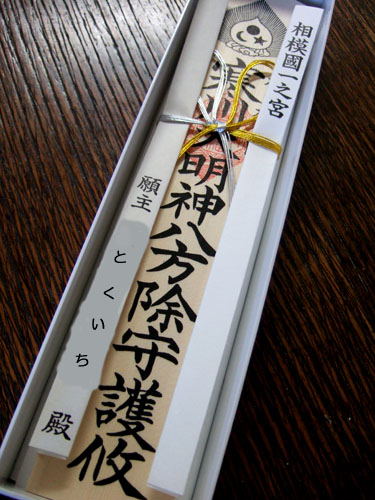 相模國一之宮
寒川大明神八方除守護攸
願主
とくいち
殿